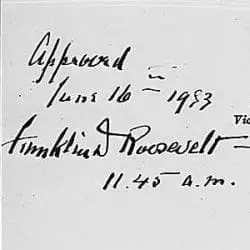 Approved
June 16 – 1933
Franklin D Roosevelt –
Vic
11.45 a.m.